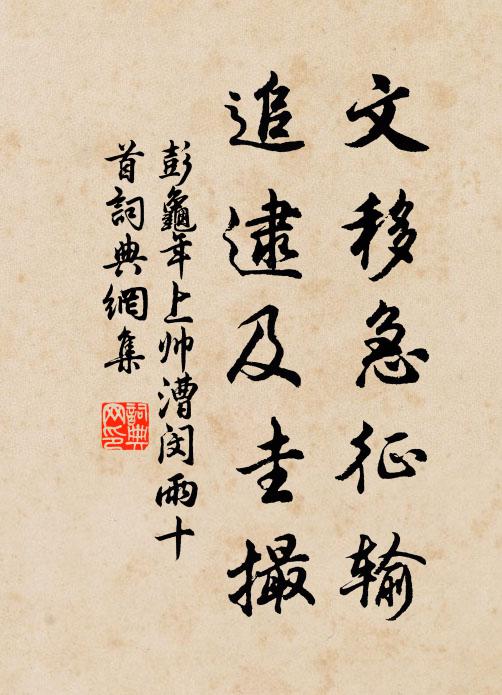 文移急征输
追逮及圭撮
彭龜年上帅漕闵雨十
首詞典網集
詞典网印